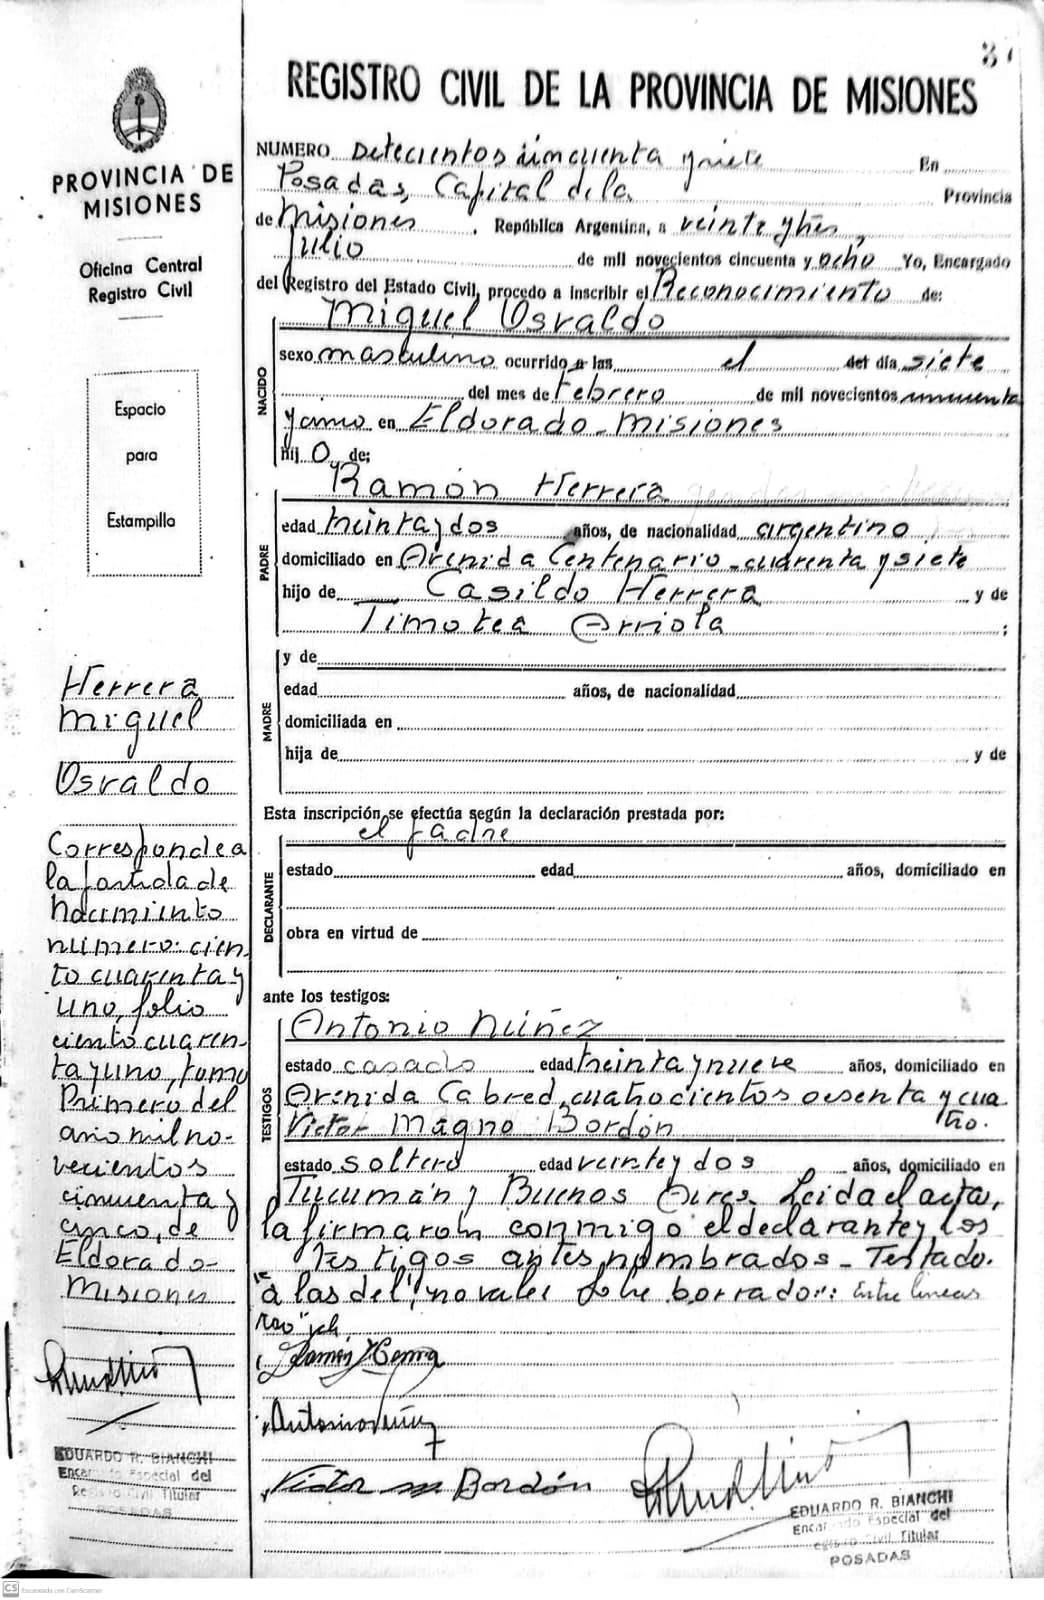 REGISTRO CIVIL DE LA PROVINCIA DE MISIONES
NUMERO Setecientos cincuenta y siete En
Posadas, Capital de la Provincia
de Misiones, República Argentina, a veinte y tres,
Julio de mil novecientos cincuenta y ocho Yo, Encargado
del Registro del Estado Civil, procedo a inscribir el Reconocimiento de:
NACIDO
Miguel Osvaldo
sexo masculino ocurrido a las el del día siete
del mes de Febrero de mil novecientos cincuenta
y cinco en Eldorado - Misiones
hij o de:
PADRE
Ramón Herrera
edad treinta y dos años, de nacionalidad argentino
domiciliado en Avenida Centenario - cuarenta y siete
hijo de Casildo Herrera y de
Timotea Arriola ;
MADRE
y de
edad años, de nacionalidad
domiciliada en
hija de y de
Esta inscripción se efectúa según la declaración prestada por:
el padre
DECLARANTE
estado edad años, domiciliado en
obra en virtud de
ante los testigos:
TESTIGOS
Antonio Núñez
estado casado edad treinta y nueve años, domiciliado en
Avenida Cabred, cuatrocientos sesenta y cuatro.
Victor Magno Bordón
estado soltero edad veinte y dos años, domiciliado en
Tucumán y Buenos Aires. Leida el acta,
la firmaron conmigo el declarante y los
testigos antes nombrados - Testado.
"a las del", no vale: Sobre borrado: : Entre lineas
Ramón Herrera
Antonio Núñez
Victor M Bordón
EDUARDO R. BIANCHI
Encargado Especial del
Registro Civil Titular
POSADAS
PROVINCIA DE
MISIONES
Oficina Central
Registro Civil
Espacio
para
Estampilla
Herrera
Miguel
Osvaldo
Corresponde a
la partida de
nacimiento
número: cien
to cuarenta y
uno, folio
ciento cuaren-
ta y uno, tomo
Primero del
año mil no-
vecientos
cincuenta y
cinco, de
Eldorado-
Misiones
EDUARDO R. BIANCHI
Encargado Especial del
Registro Civil Titular
POSADAS
CS Escaneado con CamScanner